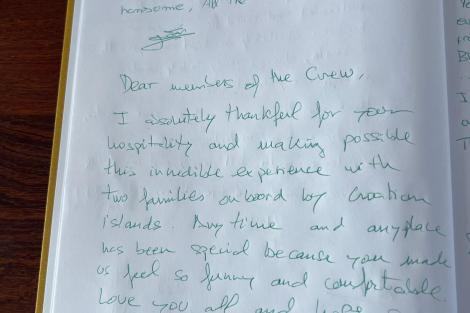 handsome, All the
Dear members of the Crew,
I absolutely thankful for your
hospitality and making possible
this incredible experience with
two families onboard by Croatian
islands. Any time and any place
has been special because you made
us feel so funny and comfortable.
Love you all and hope